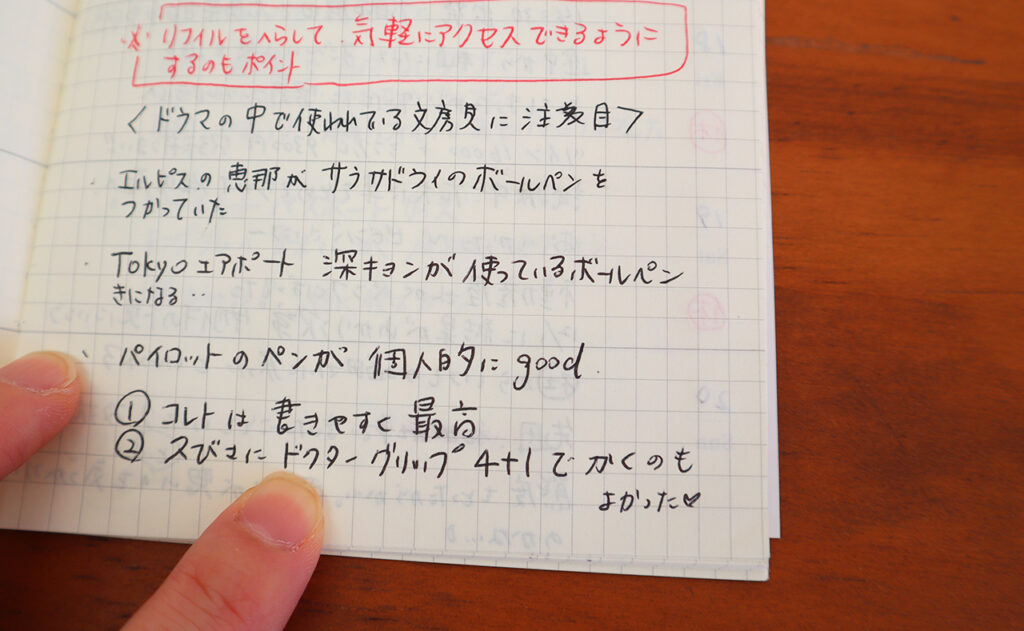 ※ リフィルをへらして、気軽にアクセスできるように
するのもポイント
〈ドラマの中で使われている文房具に注目〉
・エルピスの恵那がサラサドライのボールペンを
つかっていた
・Tokyoエアポート 深キョンが使っているボールペン
きになる‥
・パイロットのペンが個人的にgood
① コレトは書きやすく最高
② 久びさにドクターグリップ4+1でかくのも
よかった♥